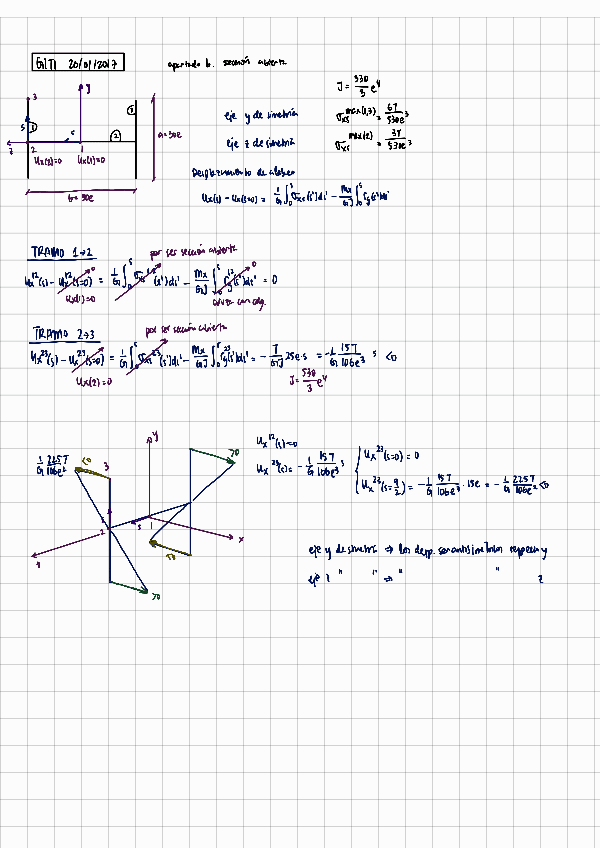 GITI 20/01/2017
apartado b. sección abierta
J = 530/3 e⁴
eje y de simetría
σxs max(1,3) = 6T/530e³
eje z de simetría
σxs max(2) = 3T/530e³
a=30e
b=50e
Ux(2)=0 Ux(1)=0
Desplazamiento de alabeo
Ux(s) - Ux(s=0) = 1/G ∫₀ˢ σxs(s')ds' - Mx/GJ ∫₀ˢ rg(s')ds'
TRAMO 1→2
por ser sección abierta
Ux¹²(s) - Ux¹²(s=0) = 1/G ∫₀ˢ σxs¹²(s')ds' - Mx/GJ ∫₀ˢ rg¹²(s')ds' = 0
Ux(1)=0
TRAMO 2→3
por ser sección abierta
Ux²³(s) - Ux²³(s=0) = 1/G ∫₀ˢ σxs²³(s')ds' - Mx/GJ ∫₀ˢ rg²³(s')ds' = - T/GJ 25e·s = -1/G 15T/106e³ s <0
Ux(2)=0
J = 530/3 e⁴
1/G 225T/106e²
<0
>0
y
x
z
1
2
3
s
Ux¹²(s)=0
Ux²³(s) = -1/G 15T/106e³ s
Ux²³(s=0) = 0
Ux²³(s=a/2) = -1/G 15T/106e³ · 15e = -1/G 225T/106e² <0
eje y de simetría ⇒ los desp. son antisimétricos respecto y
eje z " " ⇒ " " z